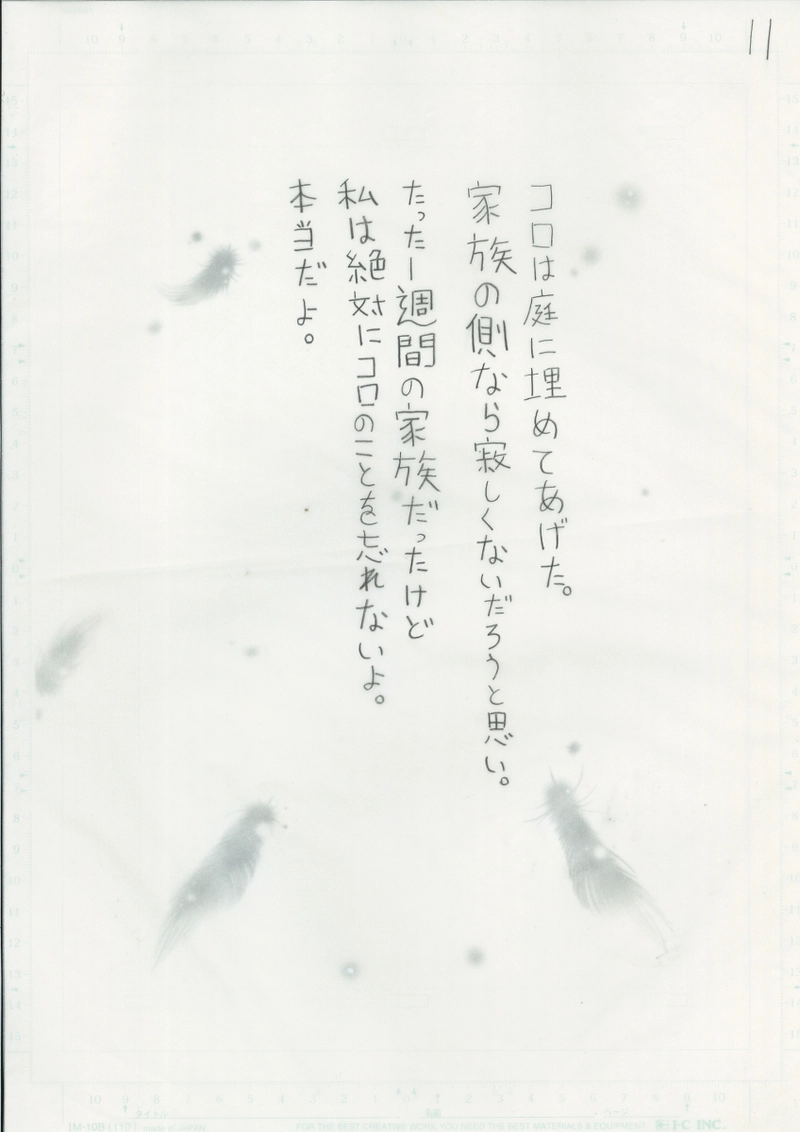 11
コロは庭に埋めてあげた。
家族の側なら寂しくないだろうと思い。
たった一週間の家族だったけど
私は絶対にコロのことを忘れないよ。
本当だよ。
タイトル
IM-10B
made in JAPAN
FOR THE BEST CREATIVE WORK, YOU NEED THE BEST MATERIALS & EQUIPMENT
I·C INC.